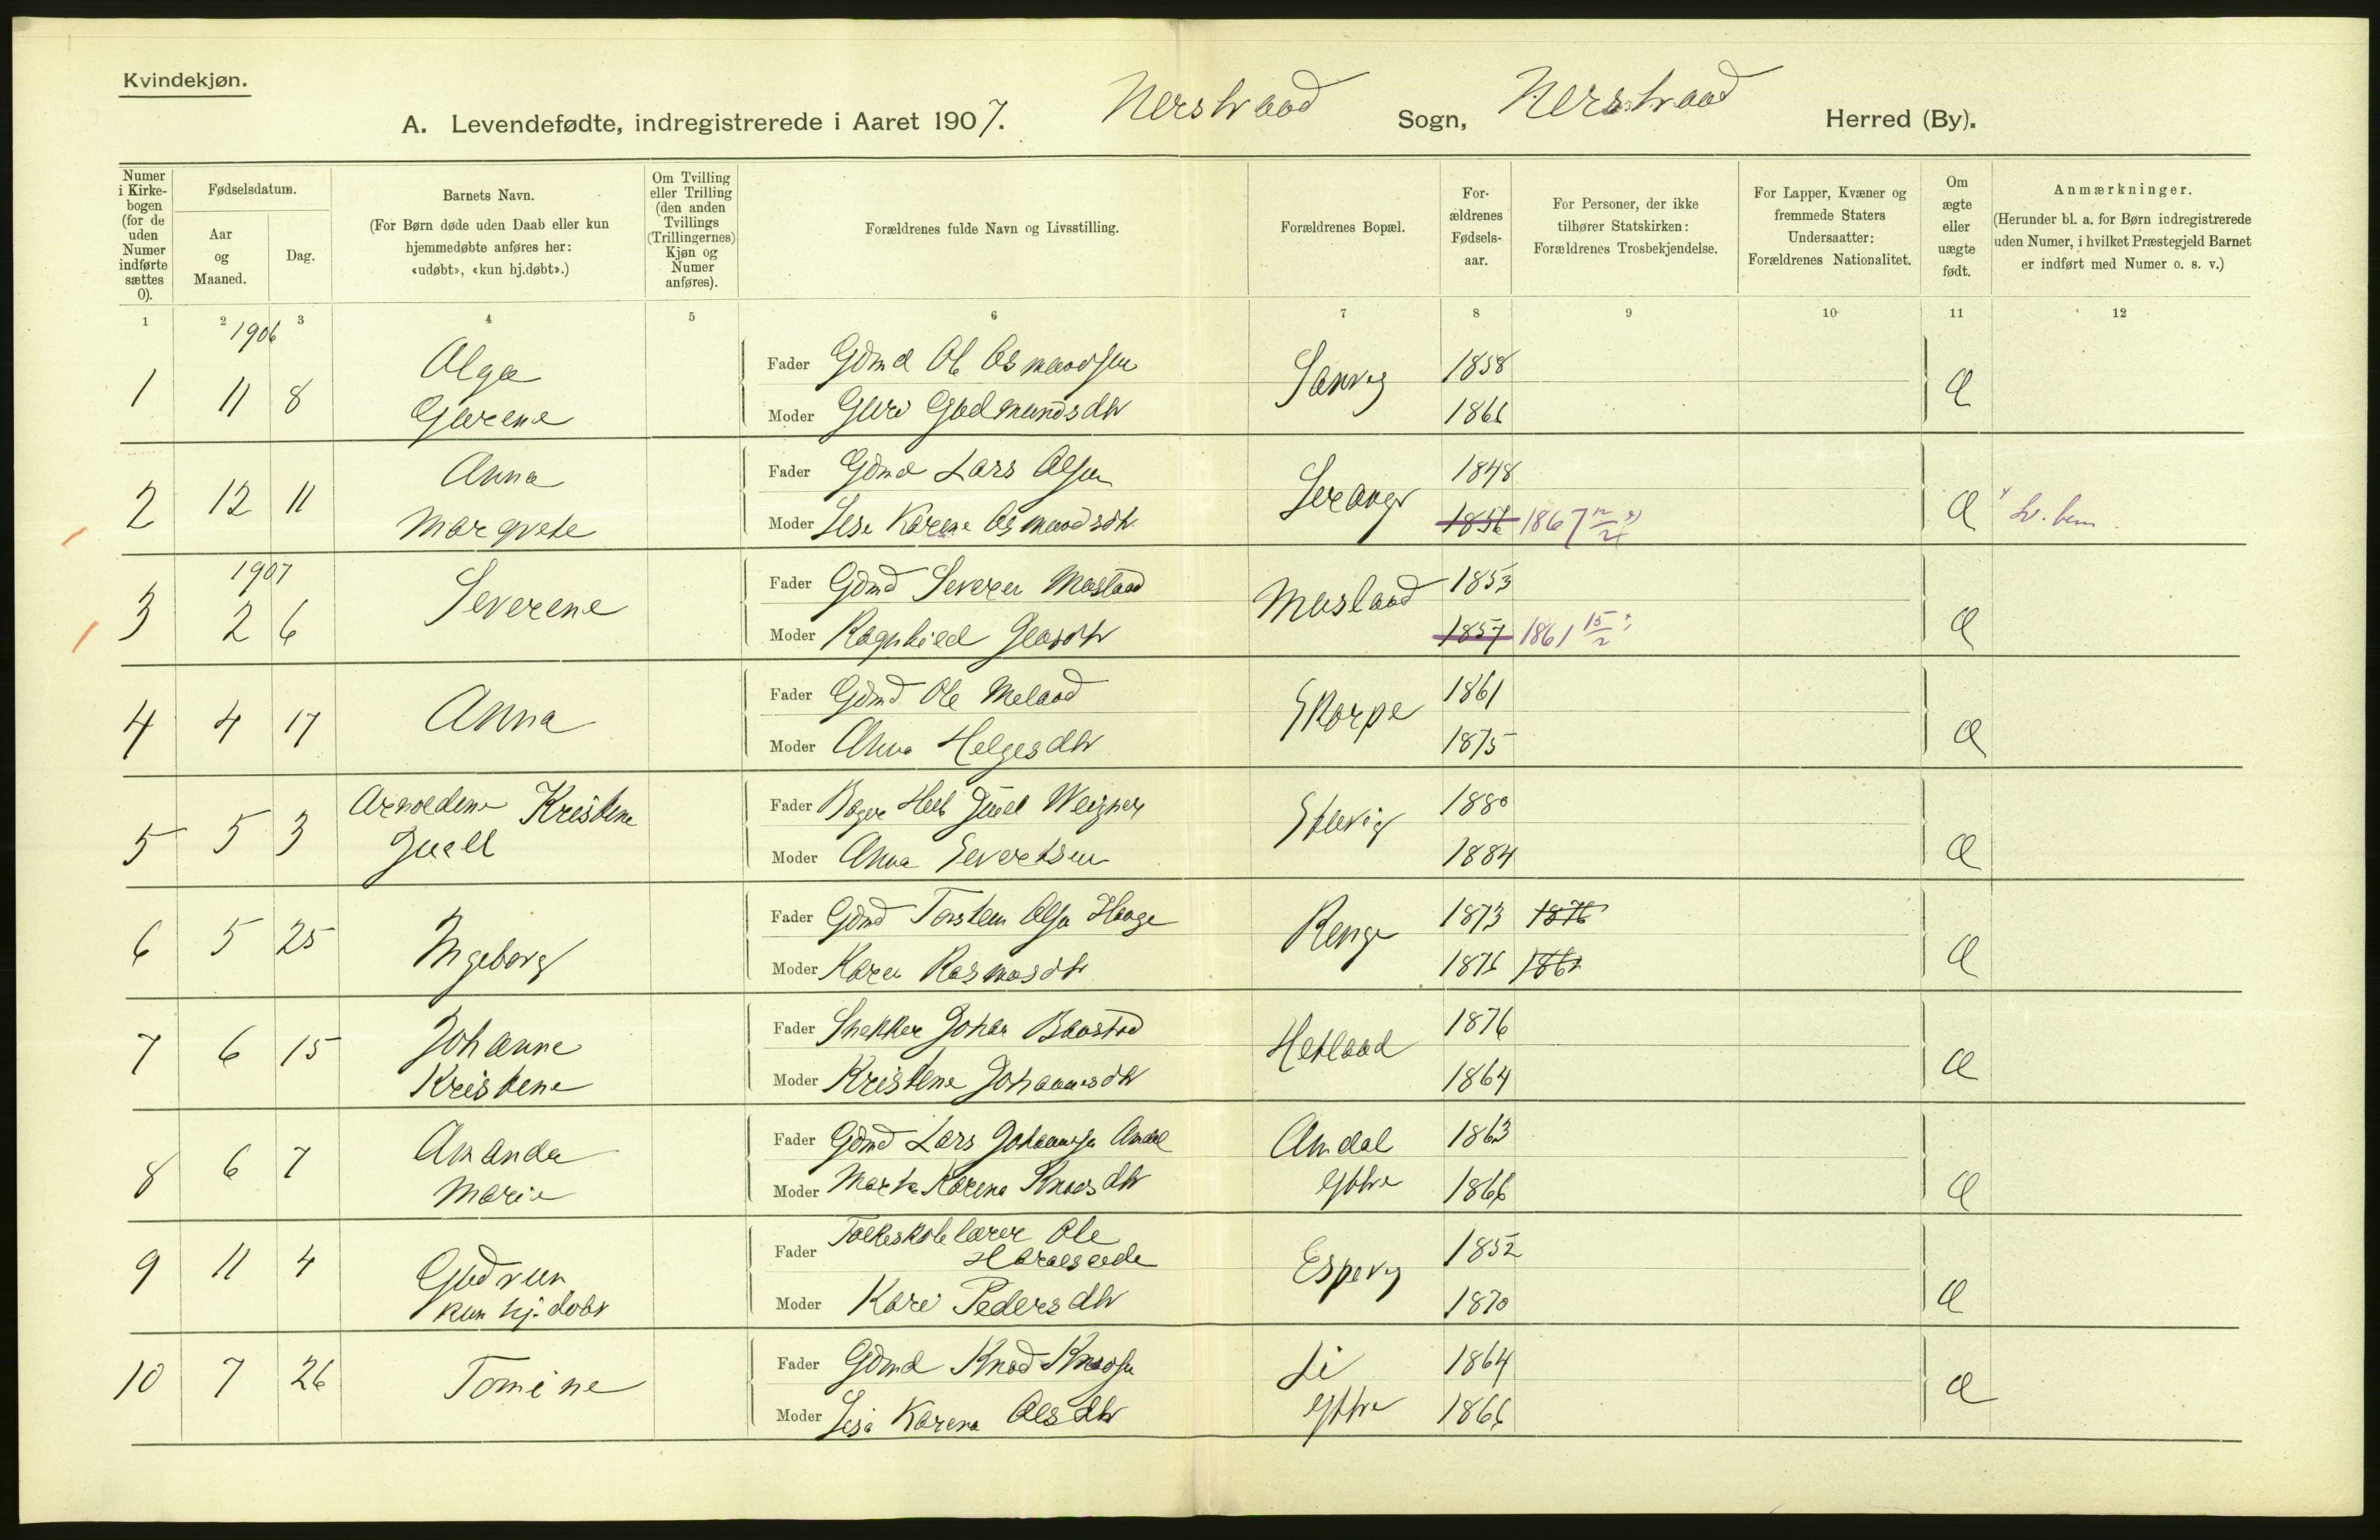 Kvindekjøn.
A. Levendefødte, indregistrerede i Aaret 1907. Nerstrand Sogn, Nerstrand Herred (By).
Numer i Kirke-bogen (for de uden Numer indførte sættes 0).
Fødselsdatum.
Aar og Maaned.
Dag.
Barnets Navn.
(For Børn døde uden Daab eller kun hjemmedøbte anføres her: «udøbt», «kun hj.døbt».)
Om Tvilling eller Trilling (den anden Tvillings (Trillingernes) Kjøn og Numer anføres).
Forældrenes fulde Navn og Livsstilling.
Forældrenes Bopæl.
For-ældrenes Fødsels-aar.
For Personer, der ikke tilhører Statskirken: Forældrenes Trosbekjendelse.
For Lapper, Kvæner og fremmede Staters Undersaatter: Forældrenes Nationalitet.
Om ægte eller uægte født.
Anmærkninger.
(Herunder bl. a. for Børn indregistrerede uden Numer, i hvilket Præstegjeld Barnet er indført med Numer o. s. v.)
1 2 3 4 5 6 7 8 9 10 11 12
1906
1 11 8 Olga
Gurene
Fader Gdmd Ol Osmundsen 1858
Moder Guri Gudmundsdtr 1866
Æ
2 12 11 Anna
Margrete
Fader Gdmd Lars Olsen 1848
Moder Karene Osmundsdtr 1856 1867 12/2
Æ
1907
3 2 6 Severene
Fader Gdmd Severen Masland Masland 1853
Moder Ragnhild 1857 1861 15/2
Æ
4 4 17 Anna
Fader Gdmd Ole Meland Skorpe 1861
Moder Anna Helgesdtr 1875
Æ
5 5 3 Kristine
Juell
Fader Juell 1880
Moder Anna Severtsen 1884
Æ
6 5 25 Ingeborg
Fader Gdmd Torstein Olsen Hauge Renge 1873 1876
Moder Karen Rasmusdtr 1876
Æ
7 6 15 Johanne
Kristene
Fader Snekker Johan Hetland 1876
Moder Kristene Johannesdtr 1864
Æ
8 6 7 Amanda
Marie
Fader Gdmd Lars Johannesen Amdal Amdal 1863
Moder Marta Karena Knutsdtr Yttre 1866
Æ
9 11 4 Gudrun
kun hj. døbt
Fader Folkeskolelærer Ole
Haraldseide Espevig 1852
Moder Kari Pedersdtr 1870
Æ
10 7 26 Tomine
Fader Gdmd Knud Knudsen Li 1864
Moder Karena Olsdtr Yttre 1866
Æ